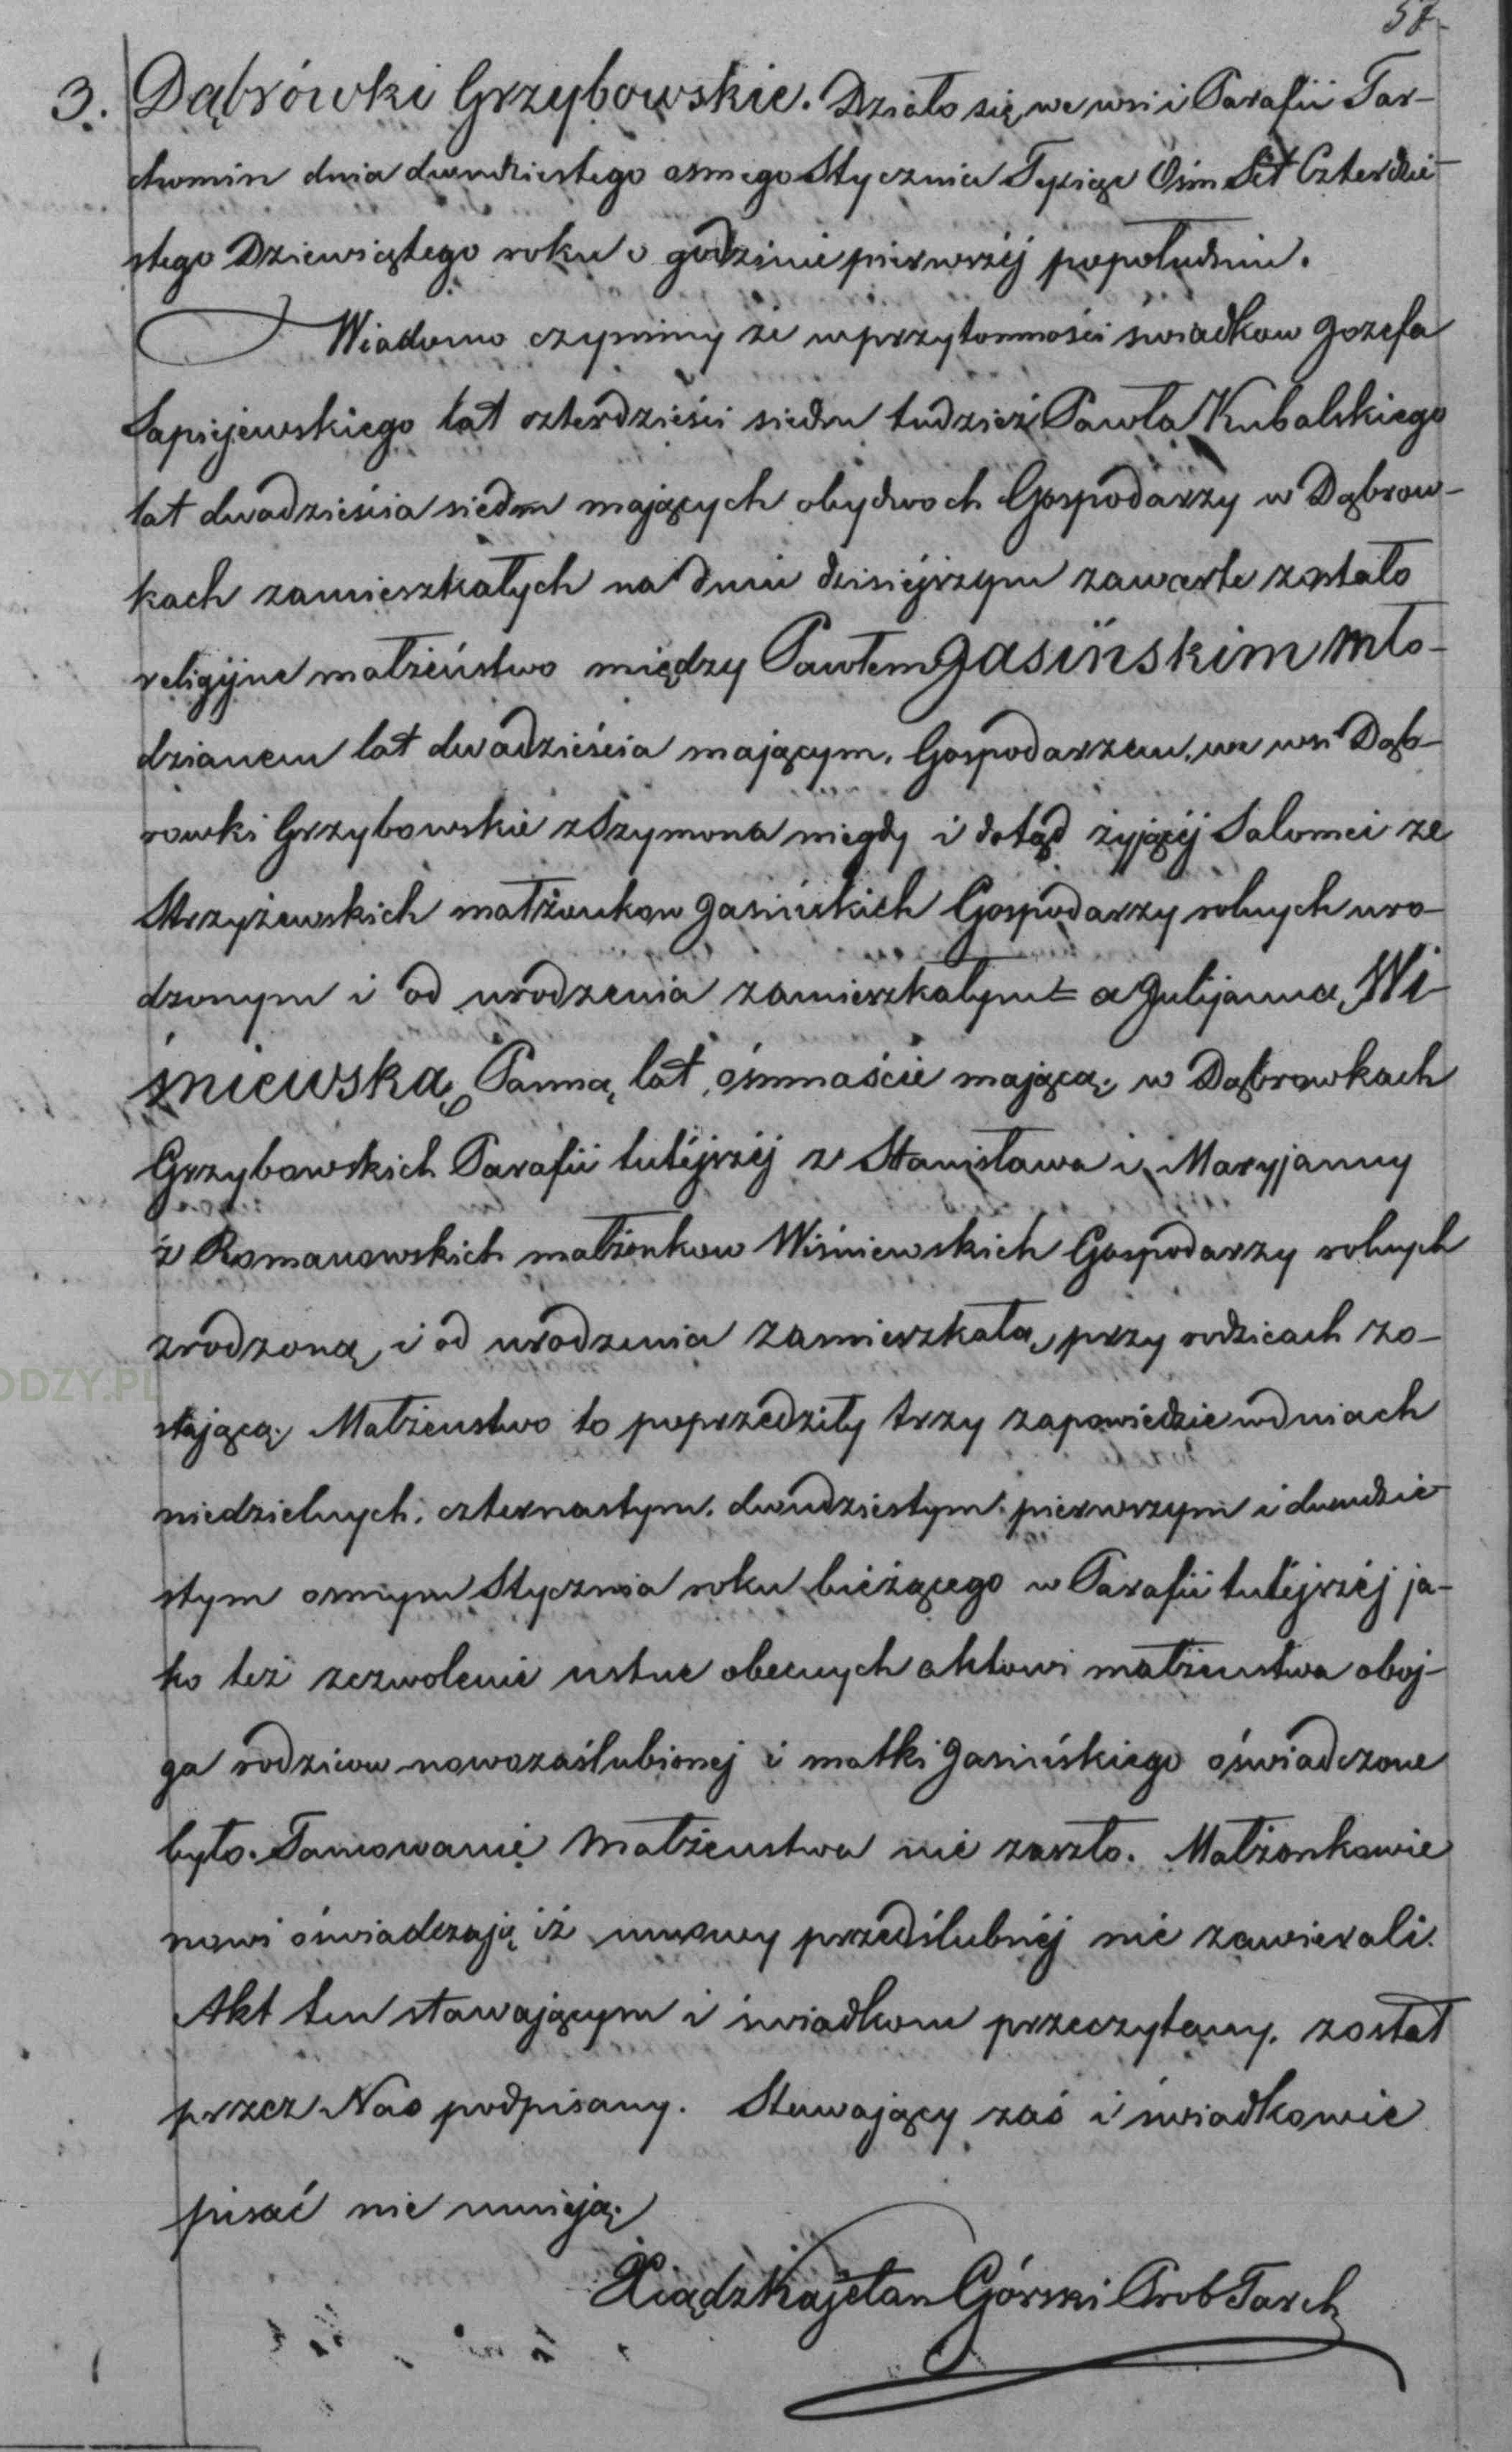 57
3. Dąbrówki Grzybowskie. Działo się we wsi i Parafii Tar-
chomin dnia dwudziestego osmego Stycznia Tysiąc Ośm Set Czterdzie-
stego Dziewiątego roku o godzinie pierwszéj popołudniu.
Wiadomo czyniemy że wprzytomności świadkow Jozefa
Sapiejewskiego lat czterdzieści siedm tudzież Pawła Kubalskiego
lat dwadzieścia siedm mających obydwoch Gospodarzy w Dąbrow-
kach zamieszkałych na dniu dzisiéjszym zawarte zostało
religijne małżeństwo między Pawłem Jasińskim Mło-
dzianem lat dwadzieścia mającym, Gospodarzem, we wsi Dąb-
rowki Grzybowskie z Szymona niegdy i dotąd żyjącéj Salomei ze
Strzyżewskich małżonkow Jasińskich Gospodarzy rolnych uro-
dzonym i od urodzenia zamieszkałym = a Julijanną Wi-
śniewską Panną lat ośmnaście mającą; w Dąbrowkach
Grzybowskich Parafii tutéjszéj z Stanisława i Maryjanny
z Romanowskich małżonkow Wiśniewskich Gospodarzy rolnych
zrodzoną i od urodzenia zamieszkałą, przy rodzicach zo-
stającą; Małżeństwo to poprzedziły trzy zapowiedzie w dniach
niedzielnych; czternastym, dwudziestym pierwszym i dwudzie-
stym osmym Stycznia roku bieżącego w Parafii tutéjszéj ja-
ko też zezwolenie ustne obecnych aktowi małżeństwa oboj-
ga rodzicow nowozaślubionej i matki Jasińskiego oświadczone
było. Tamowanie Małżeństwa nie zaszło. Małżonkowie
nowi oświadczają iż umowy przedślubnéj nie zawierali.
Akt ten stawającym i świadkom przeczytany, został
przez Nas podpisany. Stawający zaś i świadkowie
pisać nie umieją;
Xiądz Kajetan Górski Prob Tarch
ODZY.PL